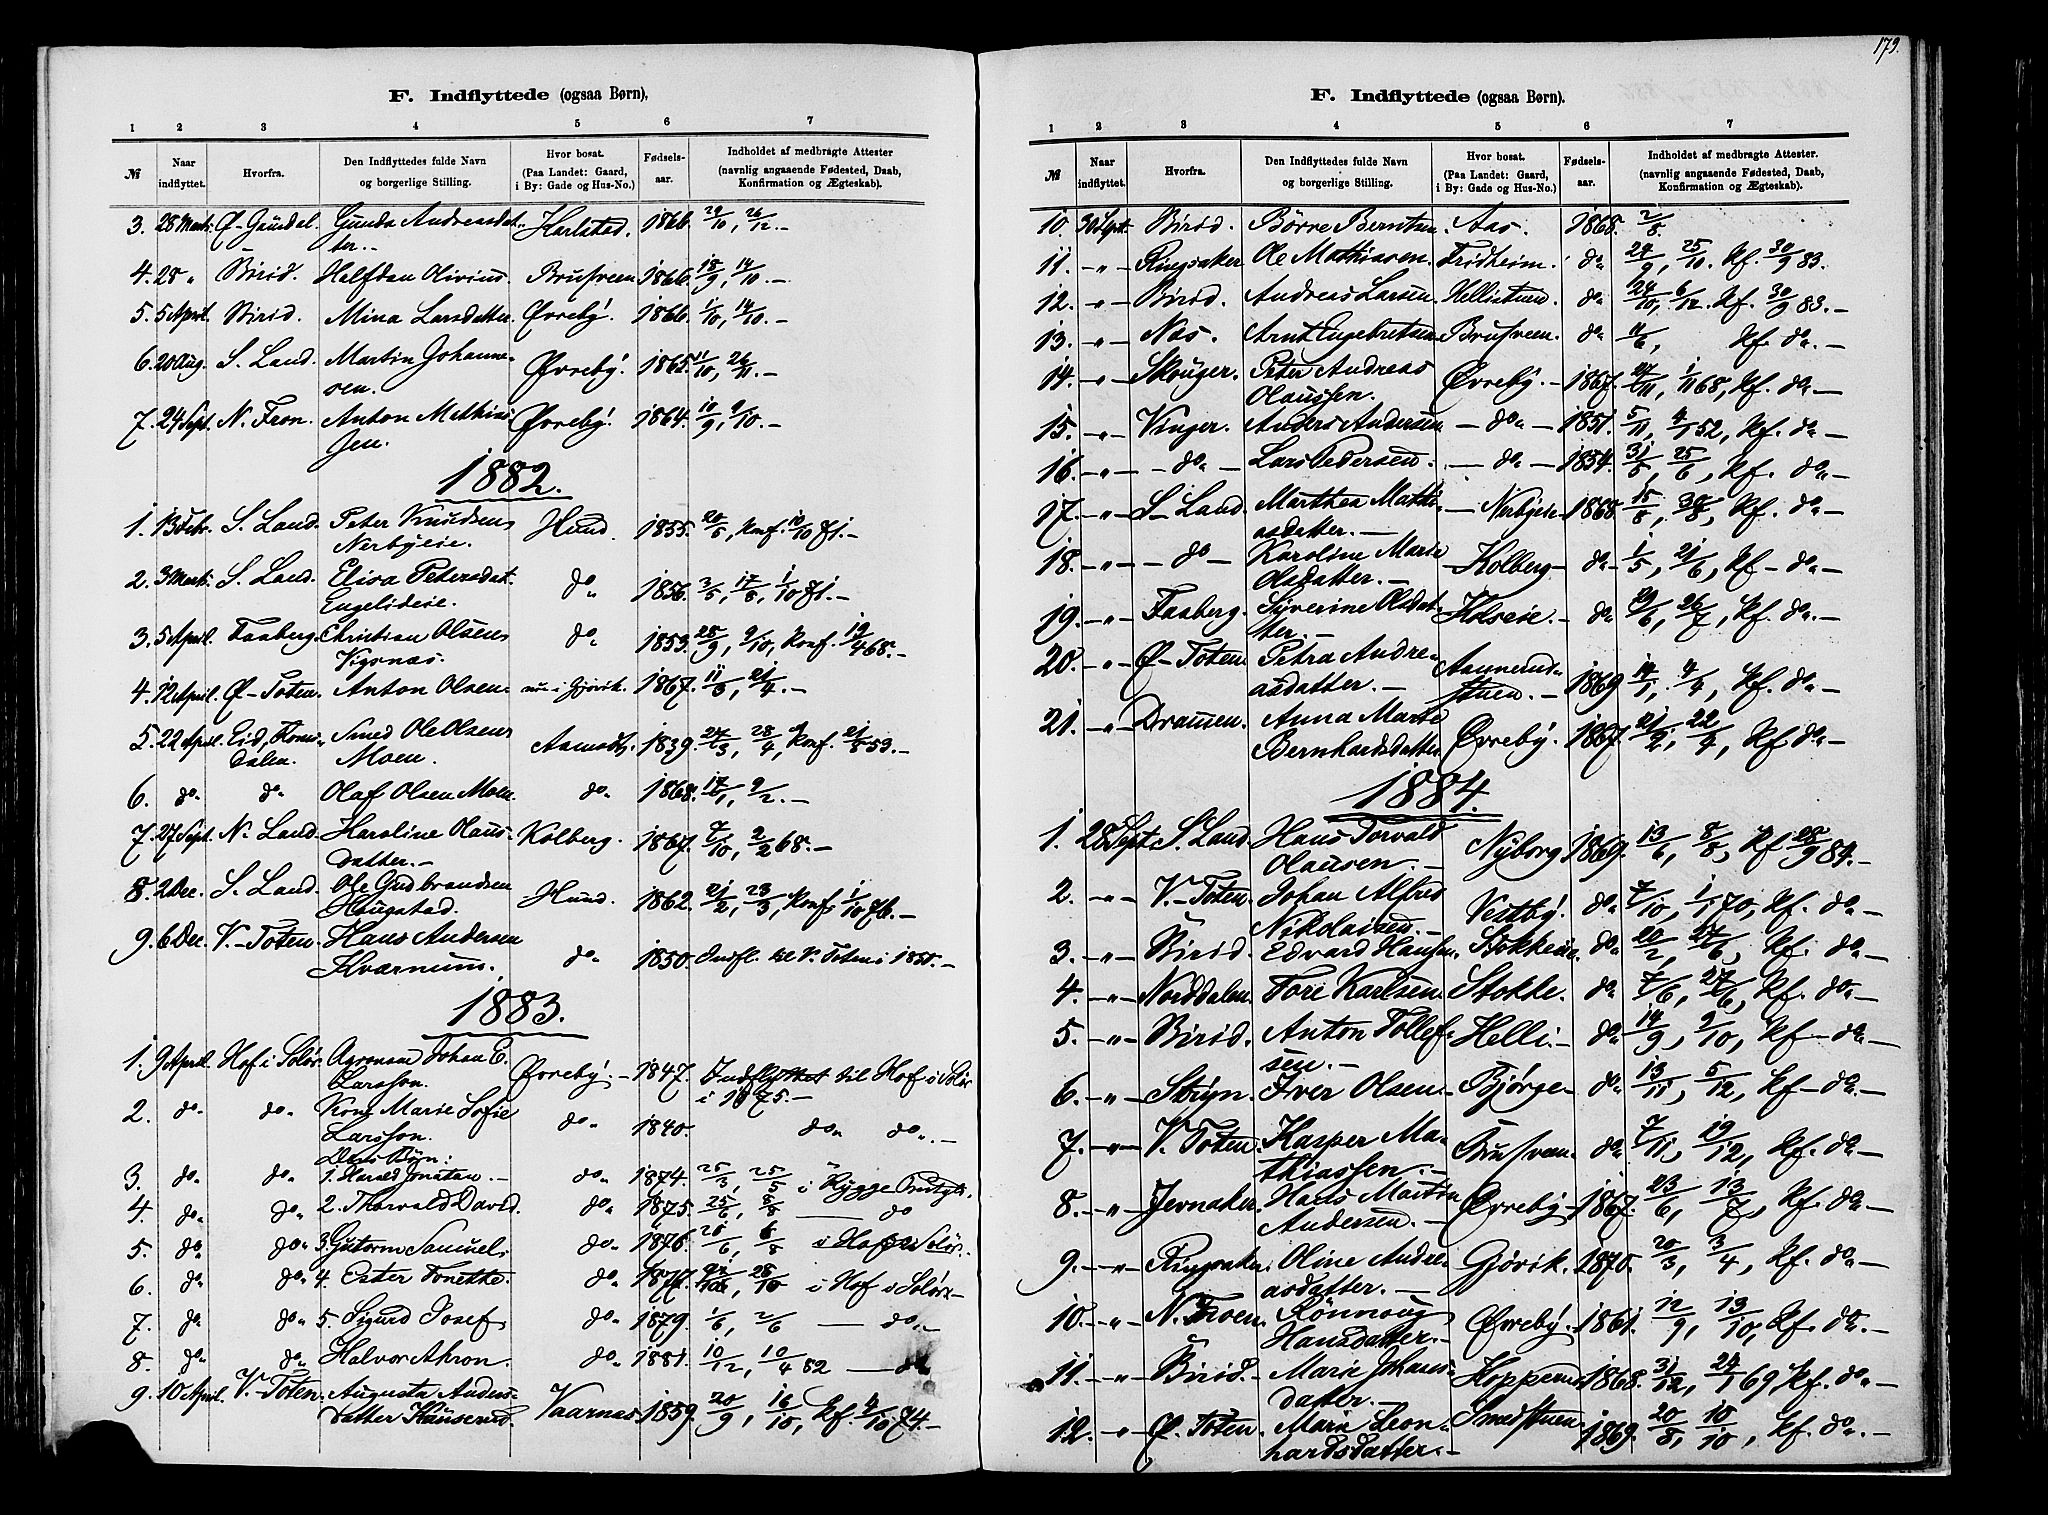 179.
F. Indflyttede (ogsaa Børn),
1 2 3 4 5 6 7
№ Naar indflyttet. Hvorfra. Den Indflyttedes fulde Navn og borgerlige Stilling. Hvor bosat. (Paa Landet: Gaard, i By: Gade og Hus-No.) Fødsels-aar. Indholdet af medbragte Attester (navnlig angaaende Fødested, Daab, Konfirmation og Ægteskab).
3. 28 Marts Ø-Gausdal Gunda Andreasdat- Karlstad. 1866. 29/10, 26/12.-
ter.-
4. 28 " Birid. Halfdan Olivius. Brusveen. 1866. 18/9, 14/10.-
5. 5 April. Birid. Mina Larsdatter. Øvreby. 1866. 1/10, 14/10.-
6. 20 Aug. S. Land. Martin Johanne- Øvreby. 1865. 11/10, 26/11.-
sen.
7. 24 Sept. N. Fron. Anton Mathias- Øvreby. 1864. 10/9, 9/10.-
sen.
1882.
1. 13 Febr. S. Land. Peter Knudsen Hund. 1855. 20/5, konf. 1/10 71.-
Nerbyeie.
2. 3 Marts. S. Land. Elisa Petersdat. do 1856. 3/5, 17/8, 1/10 71.-
Engelideie.
3. 5 April. Faaberg. Christian Olsen do 1853. 28/9, 9/10, konf. 19/4 68.-
Vigsnæs.
4. 12 April. Ø-Toten. Anton Olsen. nu i Gjøvik. 1867. 11/3, 21/4.-
5. 22 April. Eid, Roms- Smed Ole Olsen Aamodt. 1839. 24/3, 28/4, konf. 21/8 53.-
dalen. Moen.
6. do do Olaf Olsen Moen. do 1868. 17/1, 9/2.-
7. 27 Sept. N. Land. Karoline Olaus- Kolberg. 1867. 7/10, 2/2 68.-
datter.-
8. 2 Dec. S. Land. Ole Gudbrandsen Hund. 1862. 21/2, 23/3, konf. 1/10 76.-
Haugstad.
9. 6 Dec. V.-Toten. Hans Andersen do 1850. Indfl. til V. Toten i 18
Kvarnum.
1883.
1. 9 April. Hof i Solør. Agronom Johan E. Øvreby.- 1847. Indflyttet til Hof i Solør
Larsson. i 1875.-
2. do do Kone Marie Sofie do 1840. do do.-
Larsson.
Deres Børn:
3. do do 1. Harald Jonatan.- do 1874. 25/3, 25/5 i Rygge Præstgj.
4. do do 2. Thorvald David. do 1875. 25/6, 8/8 — do
5. do do 3. Gutorm Samuel. do 1876. 26/6, 6/8 i Hof i Solør.
6. do do 4. Ester Tonette. do 1877. 28/10 i Hof i Solør.-
7. do do 5. Sigurd Josef do 1879. 1/6, 2/6 — do.-
8. do do Halvor Ahron. do 1881. 10/12, 10/4 82 — do
9. 10 April. V.-Toten. Augusta Anders- Vaarnæs 1859. 20/9, 16/10, kf. 4/10 74.-
datter Hauserud.
F. Indflyttede (ogsaa Børn).
1 2 3 4 5 6 7
№ Naar indflyttet. Hvorfra. Den Indflyttedes fulde Navn og borgerlige Stilling. Hvor bosat. (Paa Landet: Gaard, i By: Gade og Hus-No.) Fødsels-aar. Indholdet af medbragte Attester. (navnlig angaaende Fødested, Daab, Konfirmation og Ægteskab).
10. 30 Sept. Birid. Børre Berntsen. Aas. 1868. 2/8
11. -"- Ringsaker Ole Mathiasen. Fridheim. do 24/9, 25/10. kf. 30/9 83.
12. -"- Birid. Andreas Larsen. Hellistuen. do 24/10, 6/12. kf. 30/9 83.-
13. -"- Næs. Arnt Engebretsen. Brusveen. do 4/6, kf. do.-
14. -"- Skouger. Peter Andreas Øvreby.- 1867. 24/11, 1/11 68, kf. do-
Olaussen.
15. -"- Vinger. Anders Andersen - do - 1851. 5/11, 4/1 52, kf. do-
16. -"- - do - Lars Pedersen. - do - 1854. 31/5, 25/6, kf. do-
17. -"- S-Land. Marthea Mathi- - Nerbyeie- 1868. 15/8, 30/8, kf. do-
asdatter.
18. -"- - do - Karoline Marie - Kolberg- do 1/5, 21/6, kf - do-
Olsdatter.-
19. -"- Faaberg. Syverine Olsdat- do 29/6, 26/7, kf. do.-
ter.-
20. -"- Ø-Toten Petra Andre- Aannerud- 1869 14/1, 4/4, kf. do-
asdatter.- stuen.-
21. -"- Dramen. Anna Marie Øvreby. 1867. 21/2, 22/4, kf do-
Bernhardsdatter.
1884.
1. 28 Sept S. Land. Hans Torvald Nyborg 1869. 13/6, 8/8, kf 28/9 84.-
Olausen.-
2. -"- V.-Toten. Johan Alfred Vestby. do 7/10, 1/1 70, kf. do-
Nikolaisen.-
3. -"- Birid. Edvard Hansen. Stokkeie. do 20/2, 24/6, kf. do-
4. -"- Norddalen. Tore Karlsen. Stokke. do 7/6, 27/6, kf. do.-
5. -"- Birid. Anton Tollef- Helli.- do 14/9, 9/10, kf - do-
sen.-
6. -"- Stryn. Iver Olsen. Bjørge- do 13/11, 5/12, kf - do.
7. -"- V. Toten. Kasper Ma- Brusveen. do 7/11, 19/12, kf. do-
thiassen.-
8. -"- Jevnaker. Hans Martin Øvreby. 1867. 23/6, 13/7, kf. do-
Andersen.-
9. -"- Ringsaker. Oline Andre- Gjøvik. 1870. 20/3, 3/4, kf. do-
asdatter.-
10. -"- N. Fron. Rønnoug Øvreby. 1861. 12/9, 13/10, kf. do.-
Hansdatter.-
11. -"- Birid.- Marie Johans- Koppernd 1868. 31/12, 24/1 69, kf. do.-
datter.-
12. -"- Ø. Toten. Marie Leon- Smedstuen. 1869. 20/8, 10/10, kf. do.-
hardsdatter.-